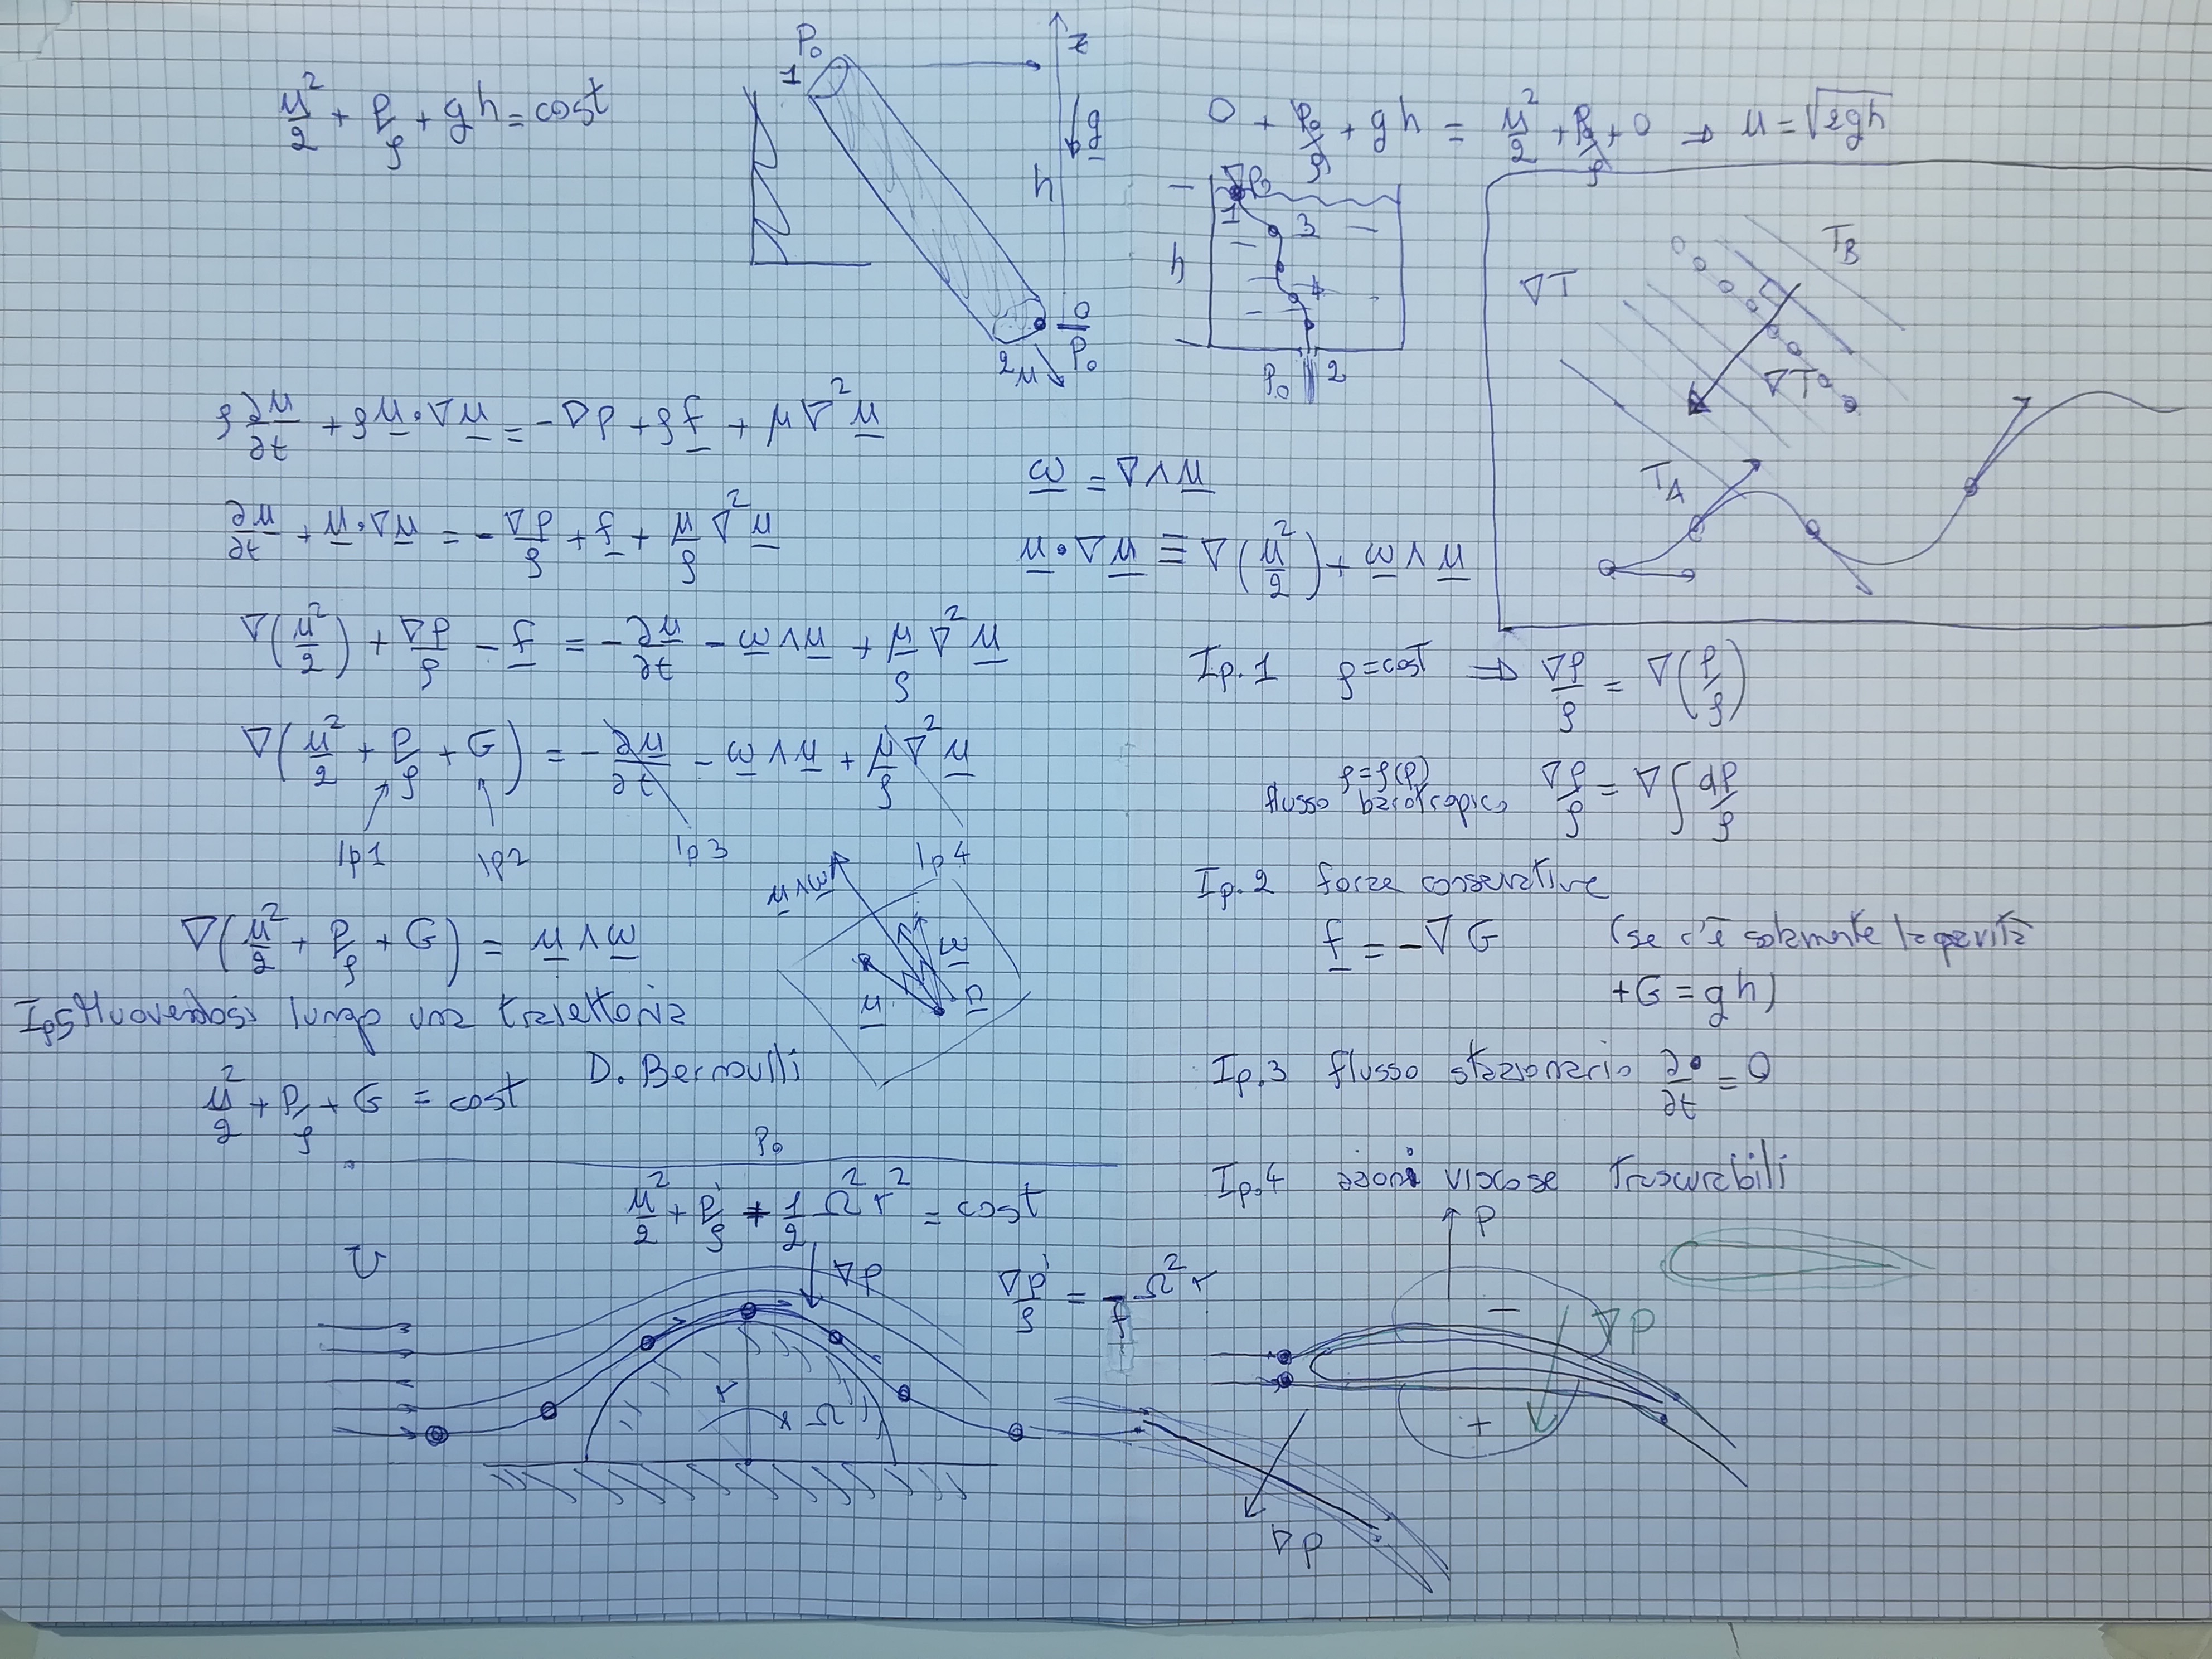 u²/2 + p/ρ + gh = cost
P₀
1
z
g
h
0
P₀
2 u
0 + p₀/ρ + gh = u²/2 + p₀/ρ + 0 ⇒ u = √2gh
P₀
1
3
h
4
P₀ 2
∇T
T_B
∇T
T_A
ρ ∂u/∂t + ρ u·∇u = -∇p + ρ f + μ∇²u
ω = ∇∧u
∂u/∂t + u·∇u = -∇p/ρ + f + μ/ρ ∇²u
u·∇u ≡ ∇(u²/2) + ω∧u
∇(u²/2) + ∇p/ρ - f = -∂u/∂t - ω∧u + μ/ρ ∇²u
Ip.1 ρ=cost ⇒ ∇p/ρ = ∇(p/ρ)
∇(u²/2 + p/ρ + G) = -∂u/∂t - ω∧u + μ/ρ ∇²u
Ip1 Ip2 Ip3 Ip4
ρ=ρ(p)
flusso barotropico ∇p/ρ = ∇∫dp/ρ
Ip.2 forze conservative
f = -∇G (se c'è solamente la gravità
+G = gh)
∇(u²/2 + p/ρ + G) = u∧ω
u∧ω
ω
u
n
Ip5 Muovendosi lungo una traiettoria
D. Bernoulli
u²/2 + p/ρ + G = cost
Ip.3 flusso stazionario ∂•/∂t = 0
Ip.4 azioni viscose trascurabili
P₀
u²/2 + p'/ρ + 1/2 Ω²r² = cost
U
∇p
∇p'/ρ = -Ω²r
r
Ω
∇p
P
−
∇p
+